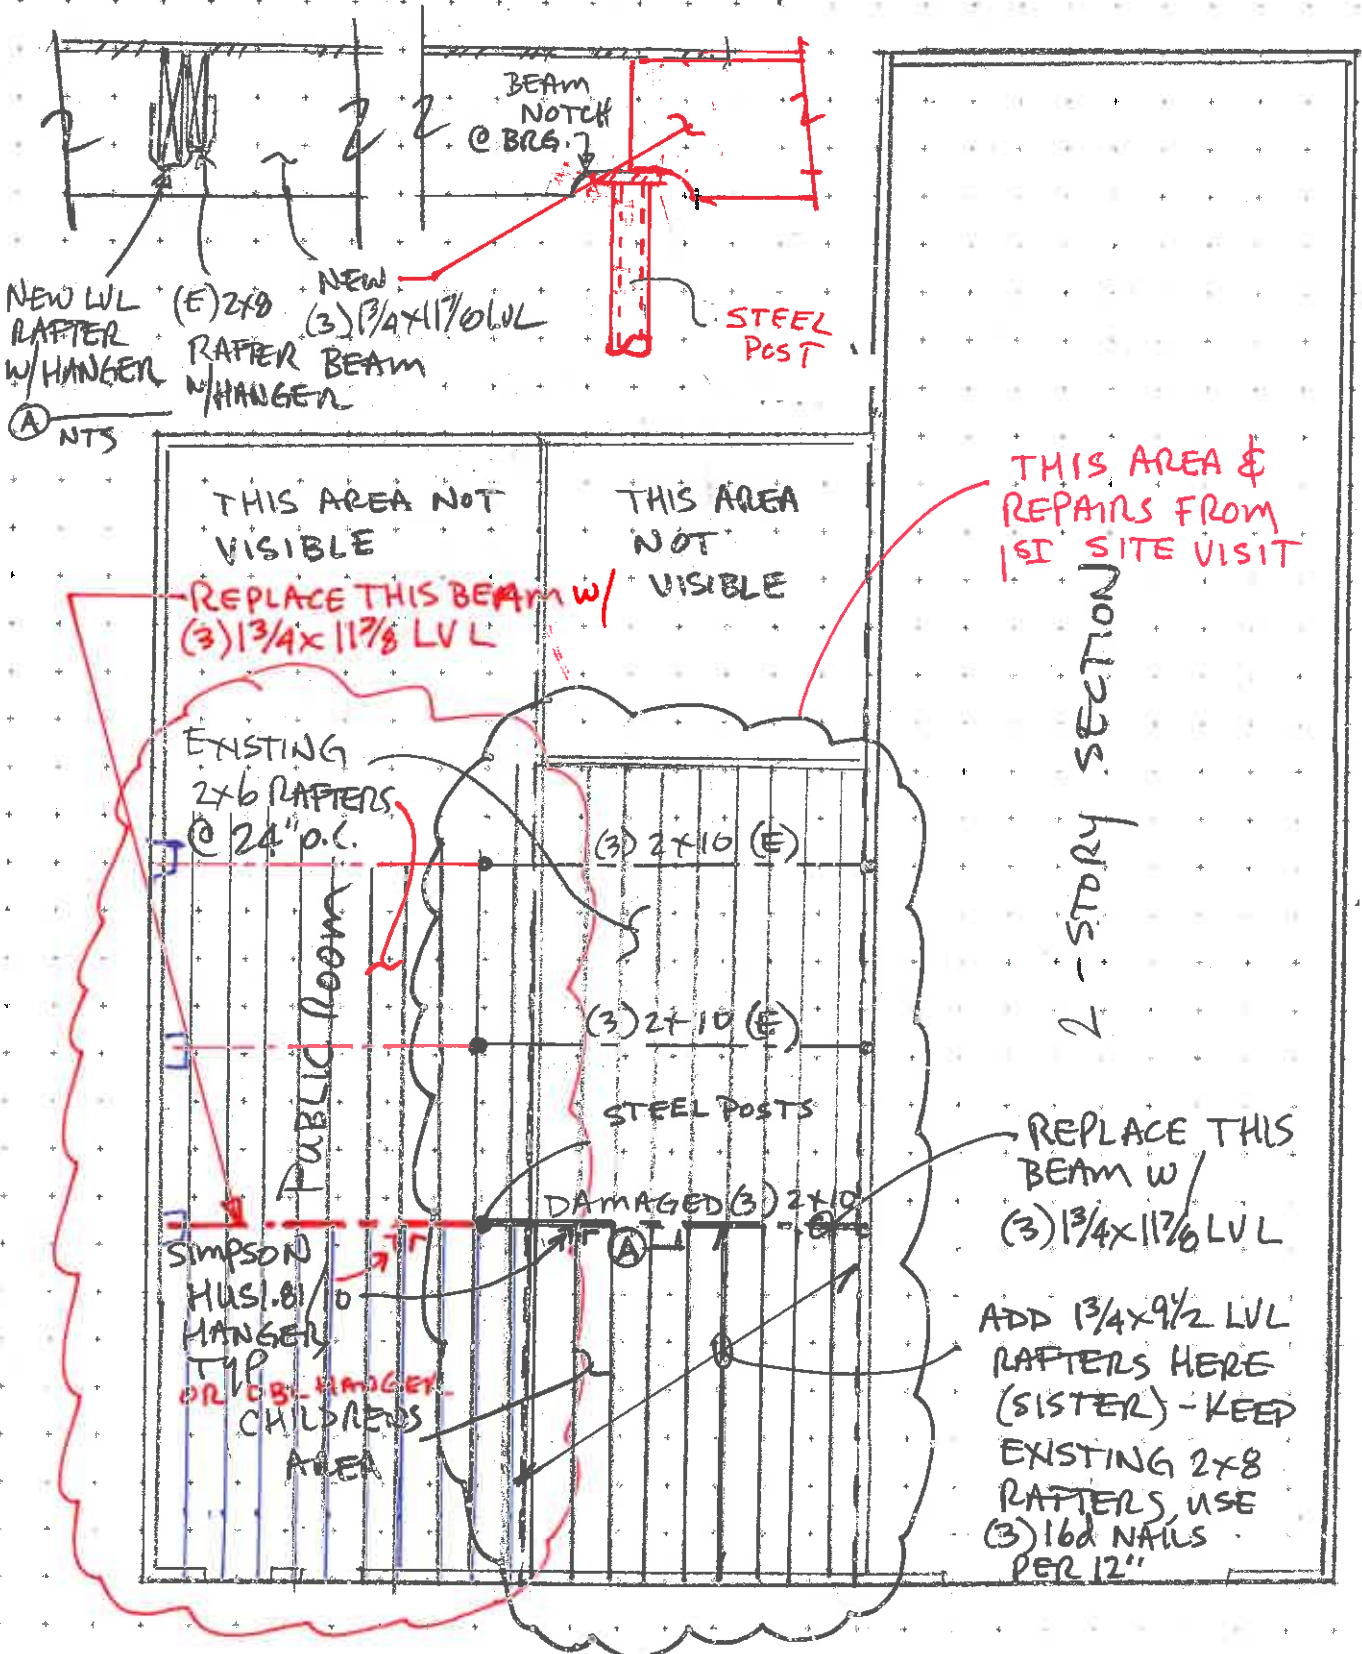 BEAM
NOTCH
@ BRG.
NEW LVL
RAFTER
W/HANGER
(E) 2x8
RAFTER
W/HANGER
NEW
(3) 1 3/4 x 11 7/8 LVL
BEAM
STEEL
POST
A
NTS
THIS AREA NOT
VISIBLE
THIS AREA
NOT
VISIBLE
THIS AREA &
REPAIRS FROM
1ST SITE VISIT
REPLACE THIS BEAM W/
(3) 1 3/4 x 11 7/8 LVL
2-STORY SECTION
EXISTING
2x6 RAFTERS
@ 24" O.C.
(3) 2x10 (E)
Public Room
(3) 2x10 (E)
STEEL POSTS
DAMAGED (3) 2x10
A
REPLACE THIS
BEAM W/
(3) 1 3/4 x 11 7/8 LVL
SIMPSON
HUS1.81/10
HANGER,
TYP
OR EBL HANGER
CHILDRENS
AREA
ADD 1 3/4 x 9 1/2 LVL
RAFTERS HERE
(SISTER) - KEEP
EXISTING 2x8
RAFTERS, USE
(3) 16d NAILS
PER 12"